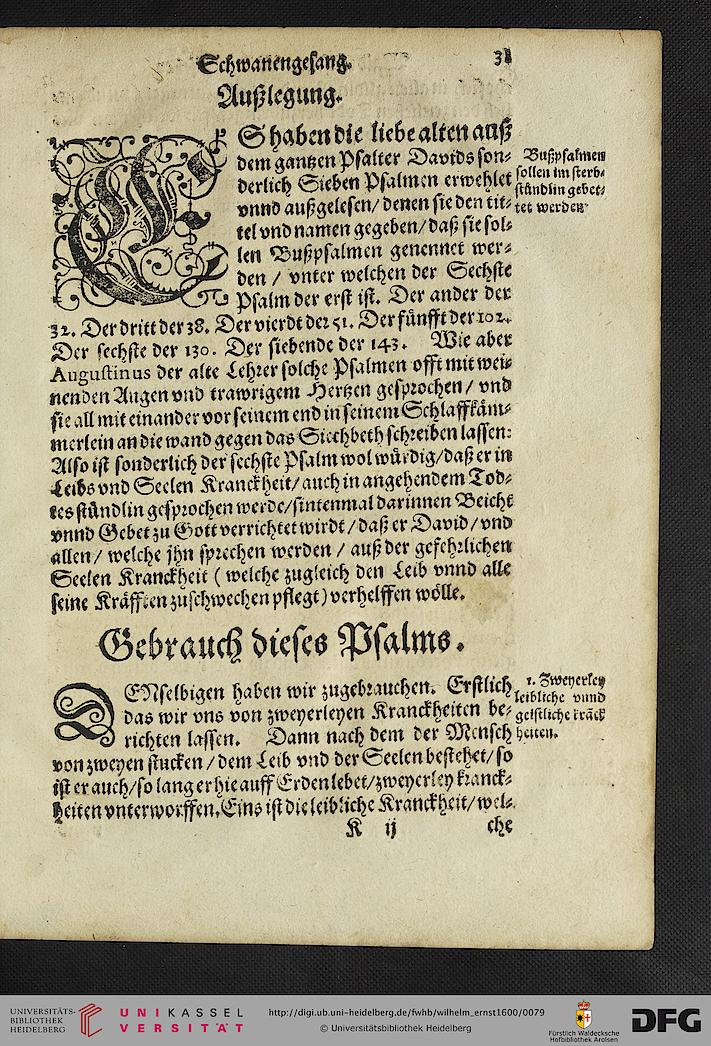 Schwanengesang.
Außlegung.
ES haben die liebe alten auß
dem gantzen Psalter Davids son-
derlich Sieben Psalmen erwehlet
vnnd außgelesen/ denen sie den tit-
tel vnd namen gegeben/ daß sie sol-
len Bußpsalmen genennet wer-
den / vnter welchen der Sechste
Psalm der erst ist. Der ander der
32. Der dritt der 38. Der vierdt der 51. Der fünfft der 102.
Der sechste der 130. Der siebende der 143. Wie aber
Augustinus der alte Lehrer solche Psalmen offt mit wei-
nenden Augen vnd trawrigem Hertzen gesprochen / vnd
sie all mit einander vor seinem end in seinem Schlaffkäm-
merlein an die wand gegen das Siechbeth schreiben lassen:
Also ist sonderlich der sechste Psalm wol würdig/ daß er in
Leibs vnd Seelen Kranckheit/ auch in angehendem Tod-
tes stündlin gesprochen werde/ sintenmal darinnen Beicht
vnnd Gebet zu Gott verrichtet wirdt / daß er David / vnd
allen / welche jhn sprechen werden / auß der gefehrlichen
Seelen Kranckheit ( welche zugleich den Leib vnnd alle
seine Kräfften zuschwechen pflegt) verhelffen wölle.
Bußpsalmen
sollen im sterb-
stündlin gebet-
tet werden
Gebrauch dieses Psalms.
DENselbigen haben wir zugebrauchen. Erstlich
das wir vns von zweyerleyen Kranckheiten be-
richten lassen. Dann nach dem der Mensch
von zweyen stucken / dem Leib vnd der Seelen bestehet/ so
ist er auch/ so lang er hie auff Erden lebet/ zweyerley kranck-
heiten vnterworffen. Eins ist die leibliche Kranckheit/ wel-
1. Zweyerley
leibliche vnnd
geistliche kräck
heiten.
K ij che
UNIVERSITÄTS-
BIBLIOTHEK
HEIDELBERG
UNIKASSEL
VERSITÄT
http://digi.ub.uni-heidelberg.de/fwhb/wilhelm_ernst1600/0079
© Universitätsbibliothek Heidelberg
Fürstlich Waldecksche
Hofbibliothek Arolsen
DFG